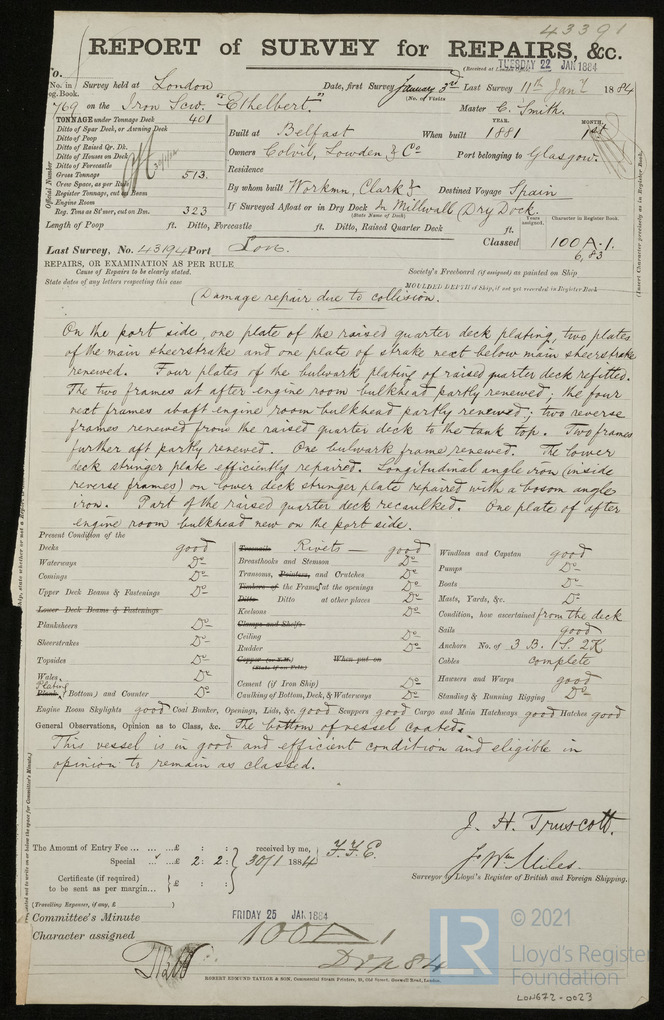 43391
REPORT of SURVEY for REPAIRS, &c.
(Received at London Office) TUESDAY 22 JAN 1884
No. in Survey held at London Date, first Survey January 3rd Last Survey 11th Jany 1884
og. Book. (No. of Visits)
769 on the Iron Scw. "Ethelbert." Master C. Smith.
TONNAGE under Tonnage Deck 401
Ditto of Spar Deck, or Awning Deck
Ditto of Poop
Ditto of Raised Qr. Dk.
Ditto of Houses on Deck
Ditto of Forecastle
Gross Tonnage 513.
Crew Space, as per Rule
Register Tonnage, cut on Room
Engine Room
Reg. Tons as St'mer, cut on Bm. 323
Official Number
YEAR. MONTH.
Built at Belfast When built 1881 1st
Owners Colvil, Lowden & Co Port belonging to Glasgow.
Residence
By whom built Workmn, Clark & Destined Voyage Spain
If Surveyed Afloat or in Dry Dock In Millwall Dry Dock.
(State Name of Dock)
Years assigned. Character in Register Book.
(Insert Character precisely as in Register Book.)
Length of Poop ft. Ditto, Forecastle ft. Ditto, Raised Quarter Deck ft.
Last Survey, No. 43194 Port Lon. Classed 100 A. 1.
6,83
REPAIRS, OR EXAMINATION AS PER RULE
Cause of Repairs to be clearly stated.
State dates of any letters respecting this case
Society's Freeboard (if assigned) as painted on Ship
MOULDED DEPTH of Ship, if not yet recorded in Register Book
(Damage repair due to collision.
On the port side, one plate of the raised quarter deck plating, two plates
of the main sheerstrake and one plate of strake next below main sheerstrake
renewed. Four plates of the bulwark plating of raised quarter deck refitted.
The two frames at after engine room bulkhead partly renewed; the four
next frames abaft engine room bulkhead partly renewed; two reverse
frames renewed from the raised quarter deck to the tank top. Two frames
further aft partly renewed. One bulwark frame renewed. The lower
deck stringer plate efficiently repaired. Longitudinal angle iron (inside
reverse frames) on lower deck stringer plate repaired with a bosom angle
iron. Part of the raised quarter deck recaulked. One plate of after
engine room bulkhead new on the port side.
Present Condition of the
Decks good
Waterways Do
Comings Do
Upper Deck Beams & Fastenings Do
Lower Deck Beams & Fastenings
Planksheers Do
Sheerstrakes Do
Topsides Do
Wales Do
Plating
Plank (Bottom) and Counter Do
Treenails Rivets — good
Breasthooks and Stemson Do
Transoms, Pointers, and Crutches Do
Timbers of the Frame at the openings Do
Ditto Ditto at other places Do
Keelsons Do
Clamps and Shelfs
Ceiling Do
Rudder Do
Copper (or Y.M.) When put on
(State if on Felt)
Cement (if Iron Ship) Do
Caulking of Bottom, Deck, & Waterways Do
Windlass and Capstan good
Pumps Do
Boats Do
Masts, Yards, &c. Do
Condition, how ascertained from the deck
Sails good
Anchors No. of 3 B. 1 S. 2 K
Cables complete
Hawsers and Warps good
Standing & Running Rigging Do
Engine Room Skylights good Coal Bunker, Openings, Lids, &c. good Scuppers good Cargo and Main Hatchways good Hatches good
General Observations, Opinion as to Class, &c. The bottom of vessel coated.
This vessel is in good and efficient condition and eligible in
opinion to remain as classed.
J. H. Truscott.
The Amount of Entry Fee ... ... ...£ : : received by me, F.Y.E.
Special ... ...£ 2 : 2 : 30/1 1884
Certificate (if required)
to be sent as per margin... £ :
(Travelling Expenses, if any, £ )
J Wm Miles.
Surveyor to Lloyd's Register of British and Foreign Shipping.
Committee's Minute FRIDAY 25 JAN 1884
Character assigned 100 A 1
ROBERT EDMUND TAYLOR & SON, Commercial Steam Printers, 19, Old Street, Goswell Road, London.
LR © 2021
Lloyd's Register
Foundation
LON672-0023